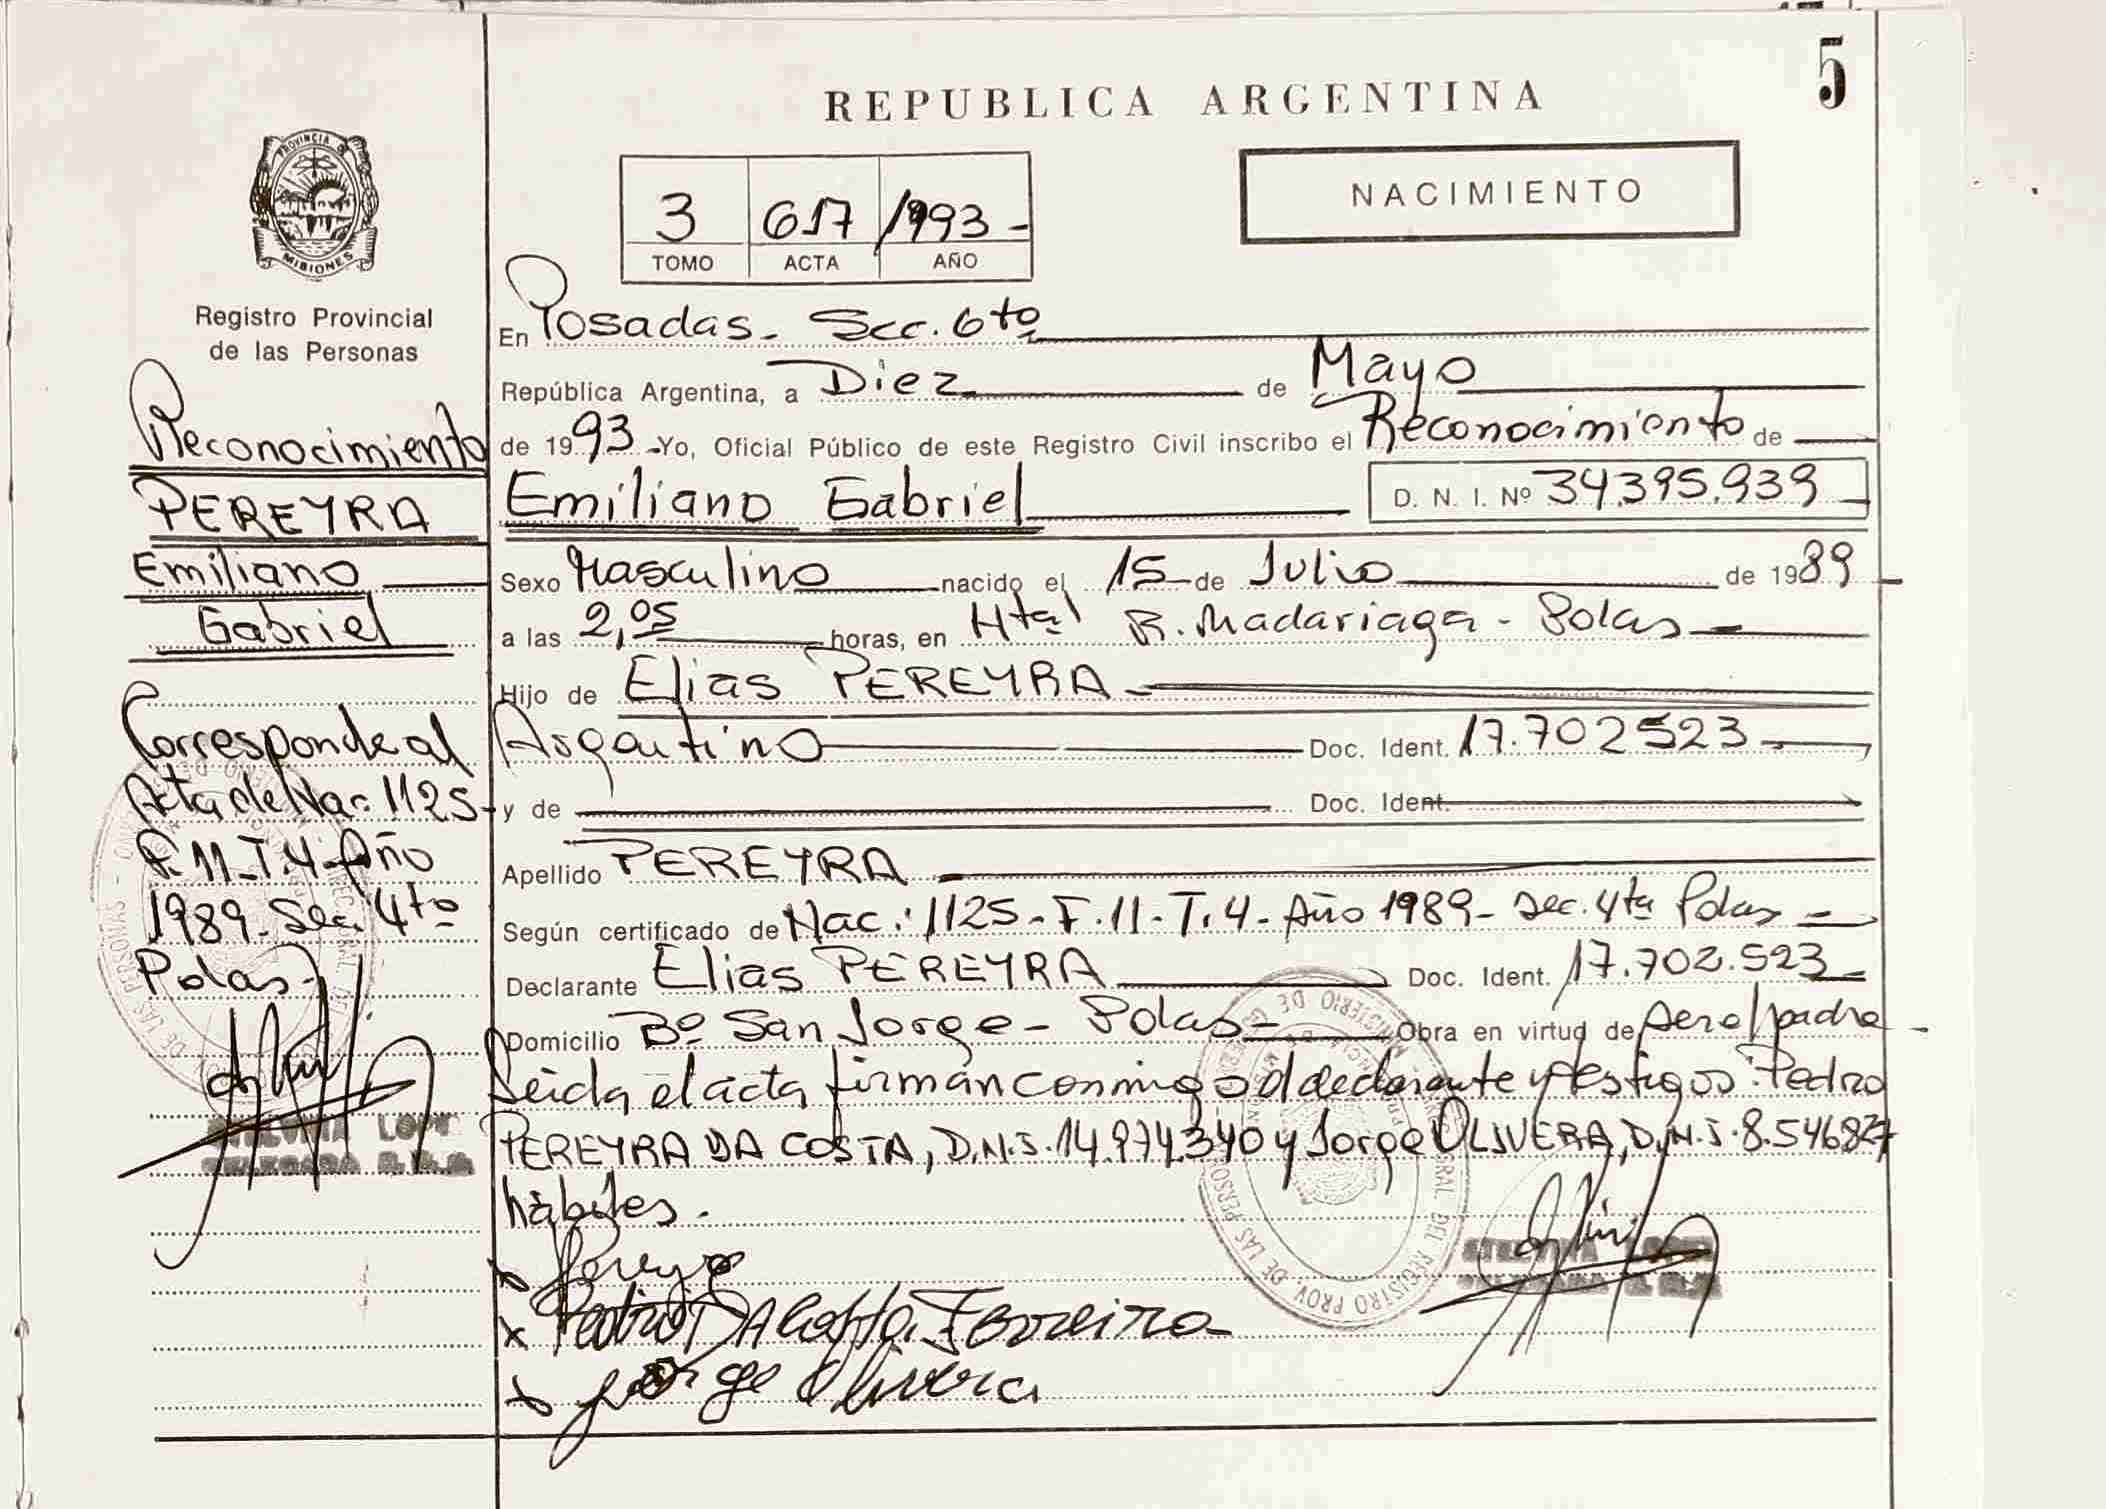 5
REPUBLICA ARGENTINA
NACIMIENTO
3 617 1993-
TOMO ACTA AÑO
PROVINCIA DE
MISIONES
Registro Provincial
de las Personas
Reconocimiento
PEREYRA
Emiliano
Gabriel
Corresponde al
Acta de Nac: 1125-
F. 11-T.4-Año
1989-Sec. 4ta
Pdas-
En Posadas- Secc. 6ta
República Argentina, a Diez de Mayo
de 1993-Yo, Oficial Público de este Registro Civil inscribo el Reconocimiento de
Emiliano Gabriel D. N. I. Nº 34.395.939
Sexo Masculino nacido el 15 de Julio de 1989
a las 2,05 horas, en Htal R. Madariaga - Pdas
Hijo de Elias PEREYRA
Argentino Doc. Ident. 17.702523
y de Doc. Ident.
Apellido PEREYRA
Según certificado de Nac: 1125-F.11-T.4-Año 1989-Sec. 4ta Pdas
Declarante Elias PEREYRA Doc. Ident. 17.702.523
Domicilio Bº San Jorge- Pdas- Obra en virtud de ser el padre
Leida el acta firman conmigo el declarante y testigos: Pedro
PEREYRA DA COSTA, D.N.I. 14.974.340 y Jorge OLIVERA, D.N.I. 8.546827
hábiles.
x Pereyra
x Pedro DA Costa Ferreira
x Jorge Olivera